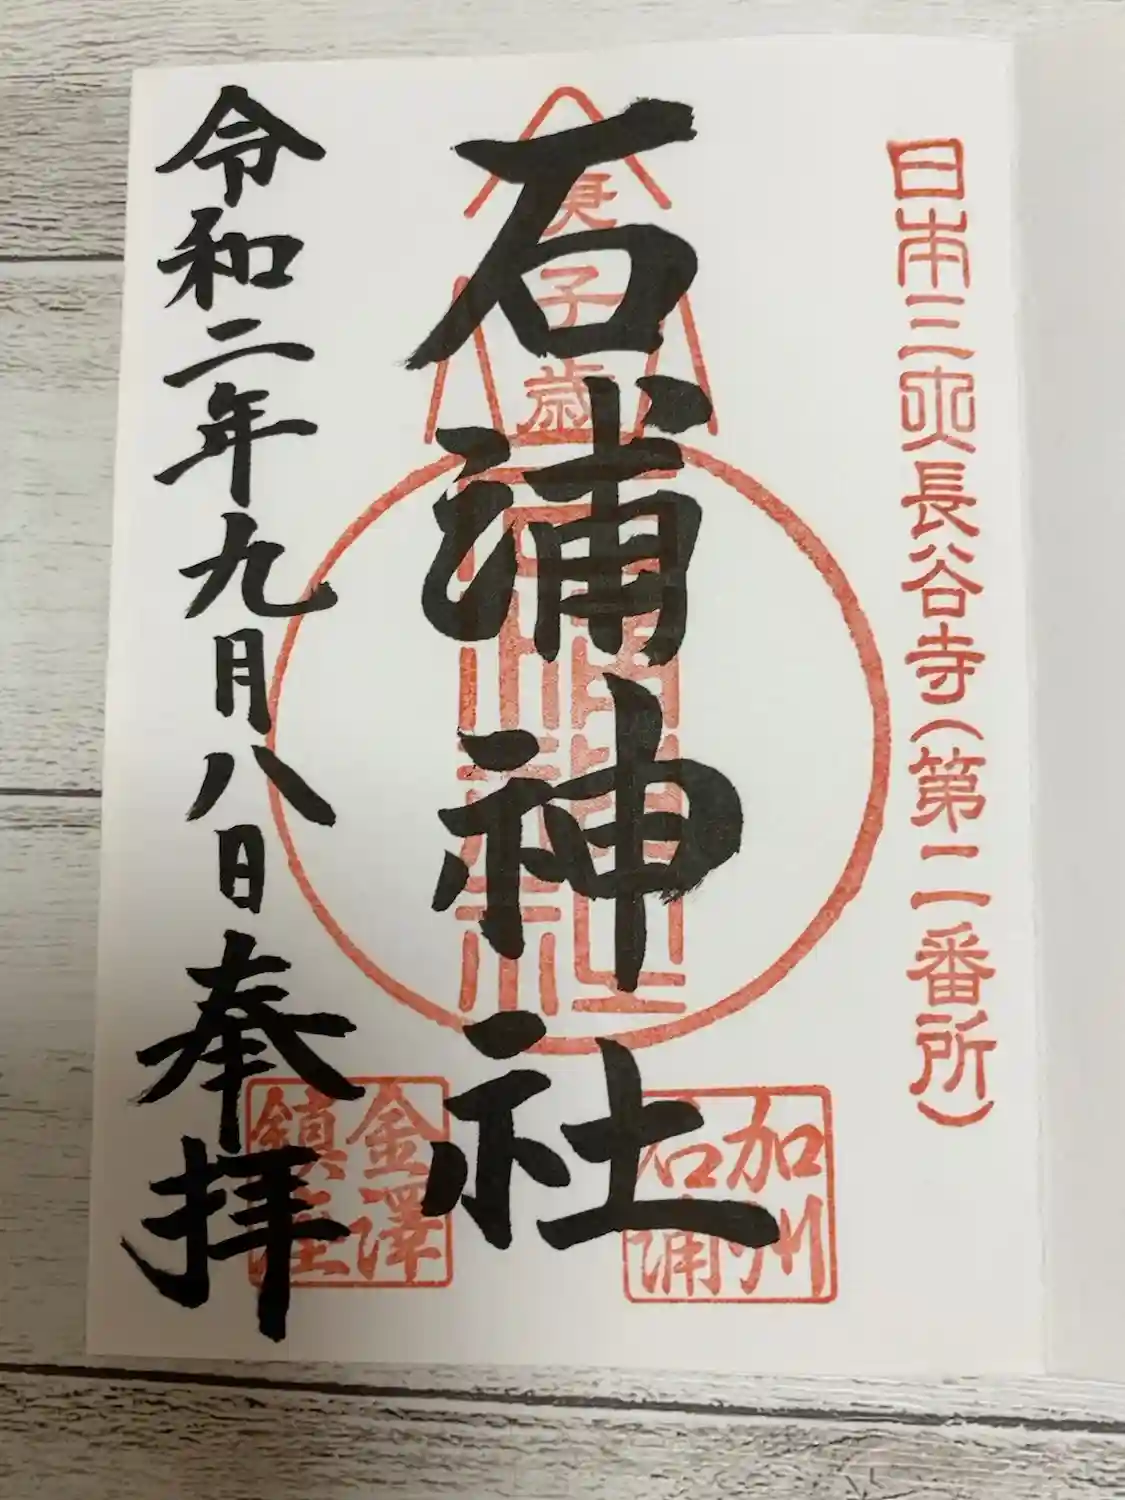 日本三大長谷寺(第二番所)
庚子歳
石浦神社
加州
石浦
金澤
令和二年九月八日奉拝